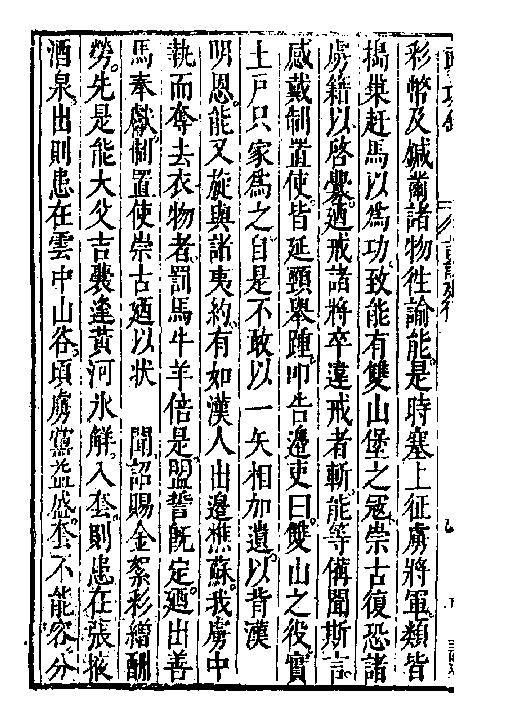 彩幣及鍼黹諸物徃諭能是時塞上征虜將軍類皆
搗巢赶馬以為功致能有雙山堡之冦崇古復恐諸
虜籍以啓舋廼戒諸將卒違戒者斬能等偹聞斯言
感戴制置使皆延頸舉踵叩告邉吏曰雙山之役實
土戸只家為之自是不敢以一矢相加遺以背漢
明恩能又旋與諸夷約有如漢人出邉樵蘇我虜中
執而奪去衣物者罰馬牛羊倍是盟誓旣定廼出善
馬奉獻制置使崇古廼以狀 聞詔賜金幣彩繒酬
勞先是能大父吉囊逢黄河氷解入套則患在張掖
酒泉出則患在雲中山谷頃虜黨益盛套不能容分